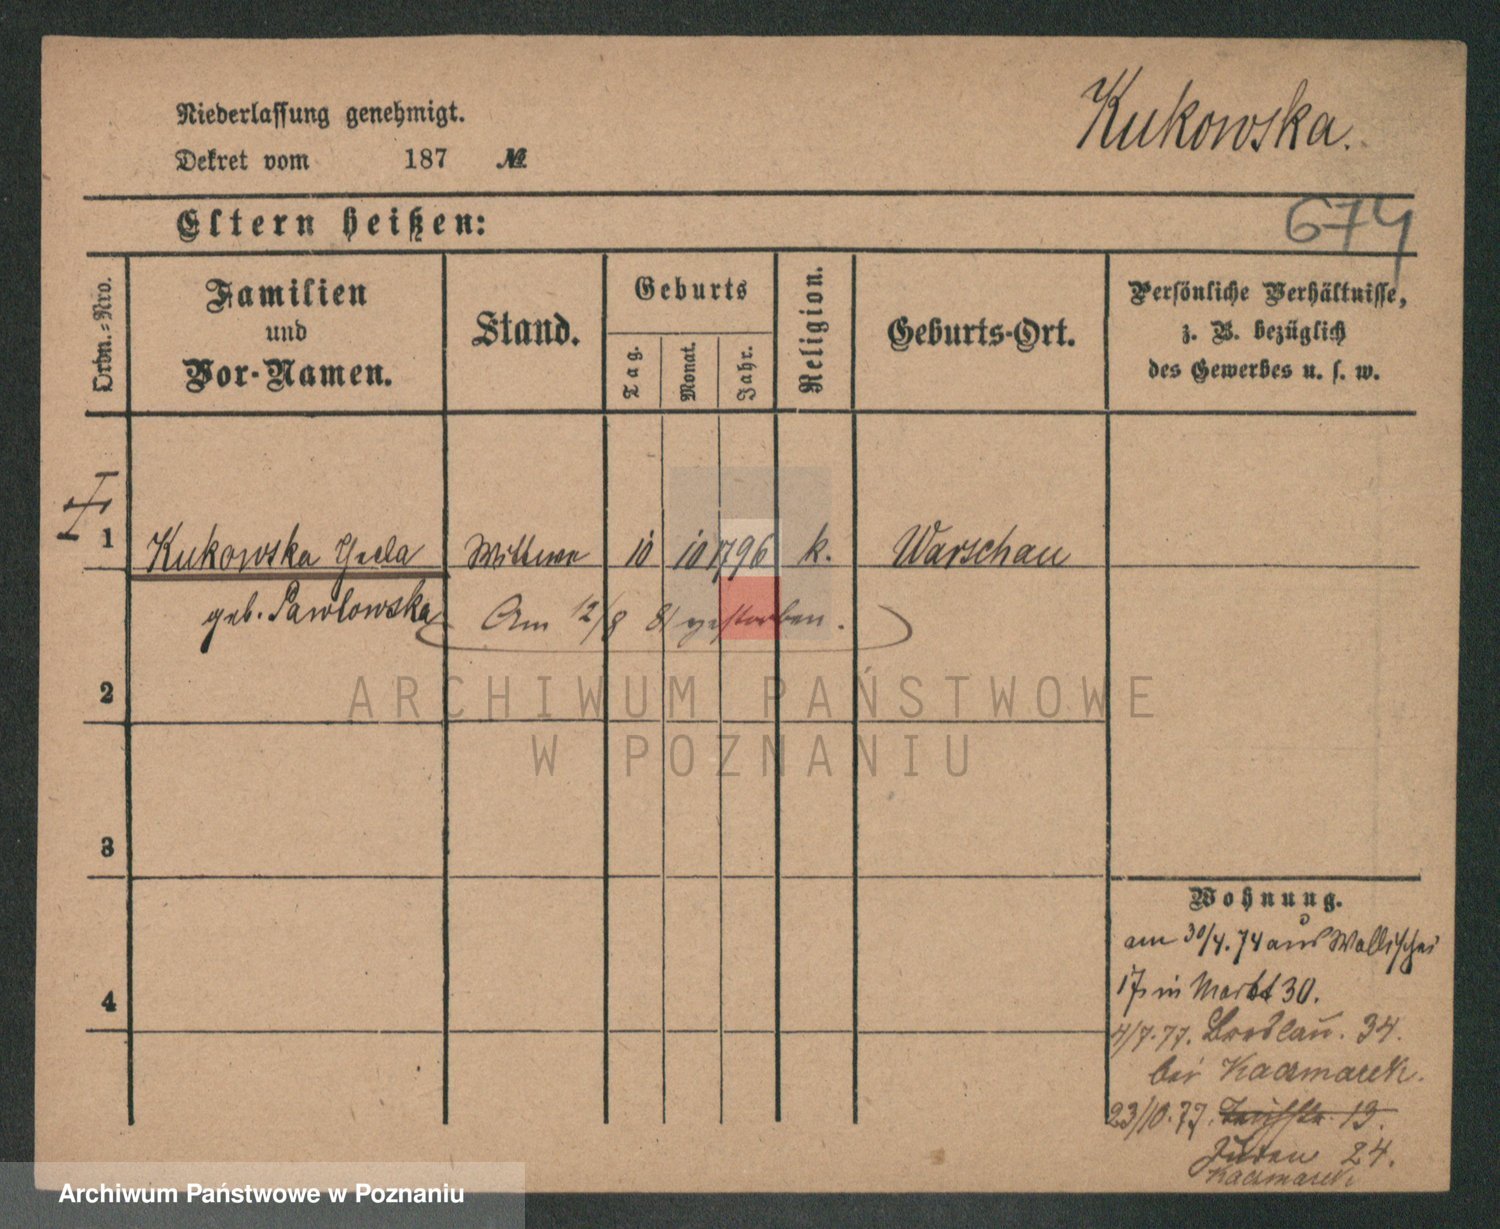 Kukowska.
Niederlassung genehmigt.
Dekret vom 187 №
Eltern heißen:
674
Ordn.-Nro.
Familien
und
Vor-Namen.
Stand.
Geburts
Tag.
Monat.
Jahr.
Religion.
Geburts-Ort.
Persönliche Verhältnisse,
z. B. bezüglich
des Gewerbes u. s. w.
1 Kukowska Wittwe 10 10 1796 k. Warschau
geb. Pawlowska
Am 12/8 81 gestorben.
2
3
4
ARCHIWUM PAŃSTWOWE
W POZNANIU
Wohnung.
am 30/4. 74 aus Wallischei
17 in Markt 30.
4/7. 77. Breslau. 34.
bei Kaczmarek.
23/10. 77. 19.
Juden 24.
Kaczmarek
Archiwum Państwowe w Poznaniu